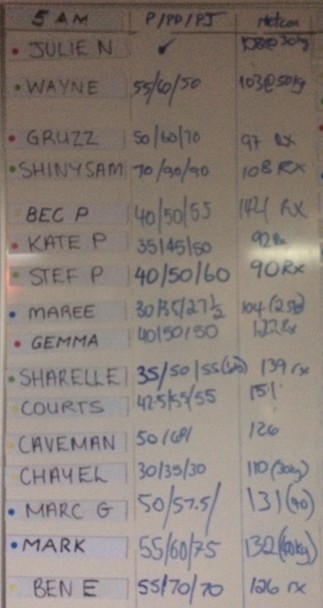 5 AM P/PP/PJ Metcon
JULIE N ✓ 108@30kg
WAYNE 55/60/50 103@50kg
GRUZZ 50/60/70 97 RX
SHINYSAM 70/90/90 108 RX
BEC P 40/50/55 RX
KATE P 35/45/50
STEF P 40/50/60 90 Rx
MAREE 30/35/27½ 104
GEMMA 40/50/50 122 Rx
SHARELLE 35/50/55 139 rx
COURTS 42.5/55/55 151
CAVEMAN 50/ 126
CHAYEL 30/35/30 110 (30kg)
MARC G 50/57.5/ 131 (40)
MARK 55/60/75 132 (40kg)
BEN E 55/70/70 126 rx